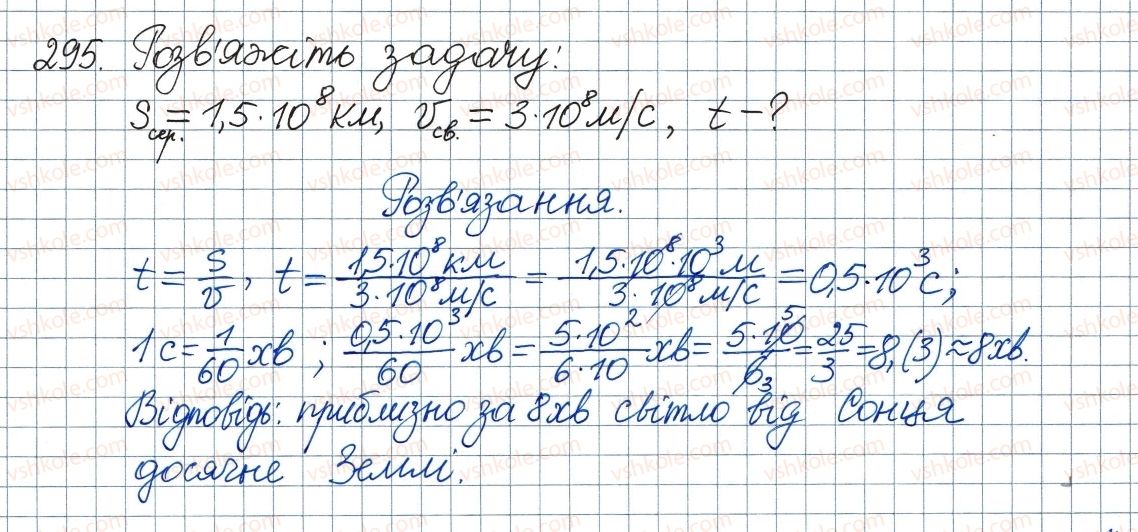 295. Розв'яжіть задачу:
S сер. = 1,5·10⁸ км, v св. = 3·10⁸ м/с, t – ?
Розв'язання.
t = s/v, t = 1,5·10⁸ км / 3·10⁸ м/с = 1,5·10⁸·10³ м / 3·10⁸ м/с = 0,5·10³ с;
1 с = 1/60 хв; 0,5·10³/60 хв = 5·10²/6·10 хв = 5·10 5/6 3 = 25/3 = 8,(3) ≈ 8 хв.
Відповідь: приблизно за 8 хв світло від Сонця
досягне Землі.